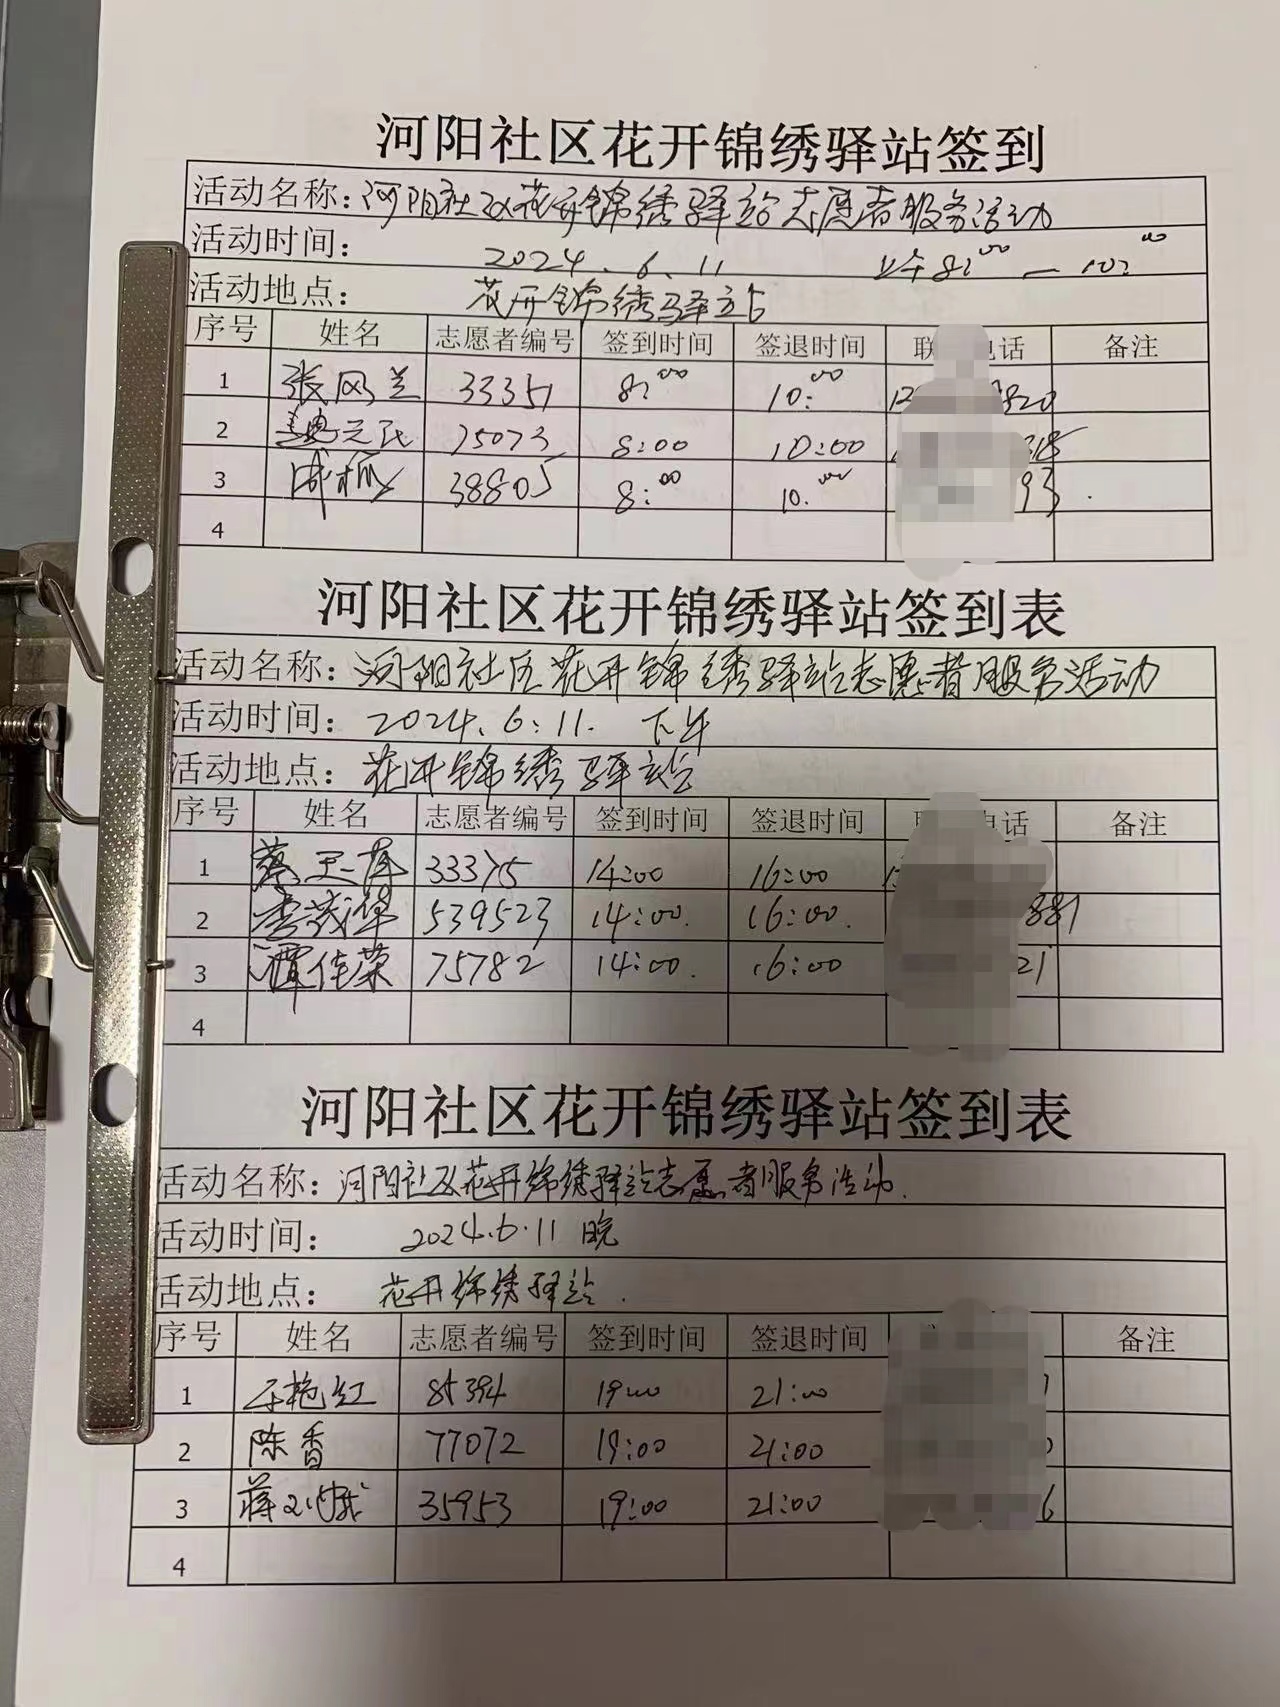 河阳社区花开锦绣驿站签到
活动名称：河阳社区花开锦绣驿站志愿者服务活动
活动时间： 2024.6.11 上午8:00—10:00
活动地点： 花开锦绣驿站
序号 姓名 志愿者编号 签到时间 签退时间 联 电话 备注
1 张网兰 33351 8:00 10:00 820
2 75073 8:00 10:00
3 38805 8:00 10:00 93
4
河阳社区花开锦绣驿站签到表
活动名称：河阳社区花开锦绣驿站志愿者服务活动
活动时间：2024.6.11. 下午
活动地点：花开锦绣驿站
序号 姓名 志愿者编号 签到时间 签退时间 电话 备注
1 33375 14:00 16:00
2 李茂华 539523 14:00 16:00 881
3 谭佳荣 75782 14:00 16:00 21
4
河阳社区花开锦绣驿站签到表
活动名称：河阳社区花开锦绣驿站志愿者服务活动
活动时间： 2024.6.11 晚
活动地点： 花开锦绣驿站
序号 姓名 志愿者编号 签到时间 签退时间 备注
1 85394 19:00 21:00
2 陈香 77072 19:00 21:00
3 35953 19:00 21:00 6
4